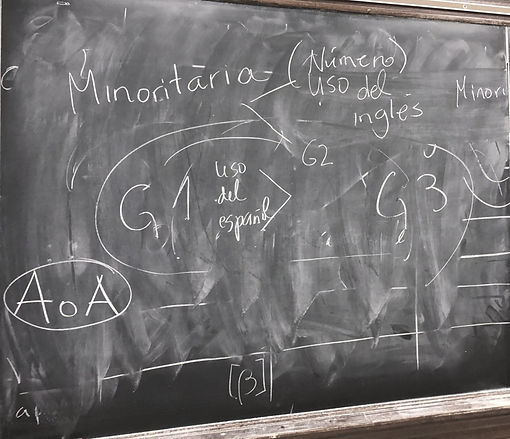 Minoritaria (Número)
uso del
inglés
Minori
G2
G1 uso G3
del
español
AoA
[β]